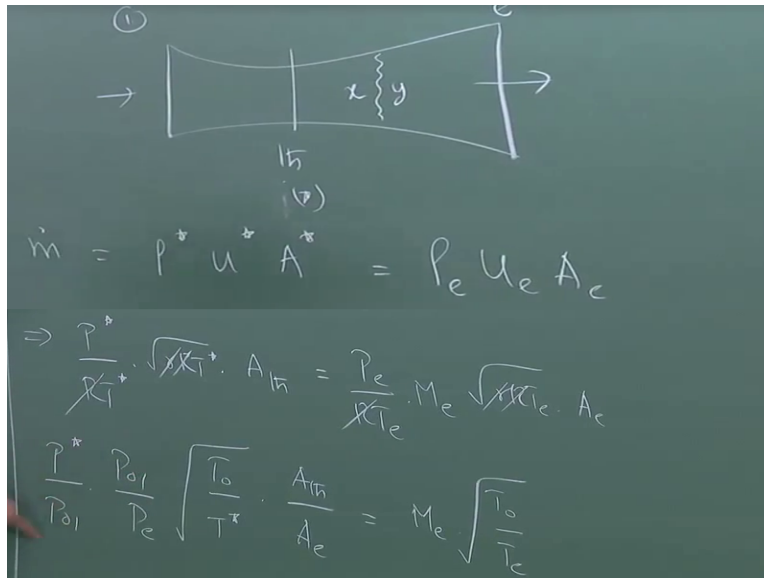 ① e
x y
th
(*)
ṁ = ρ* u* A* = ρe ue Ae
⇒ P*/RT* · √γRT* · Ath = Pe/RTe · Me √γRTe · Ae
P*/P01 · P01/Pe √T0/T* · Ath/Ae = Me √T0/Te